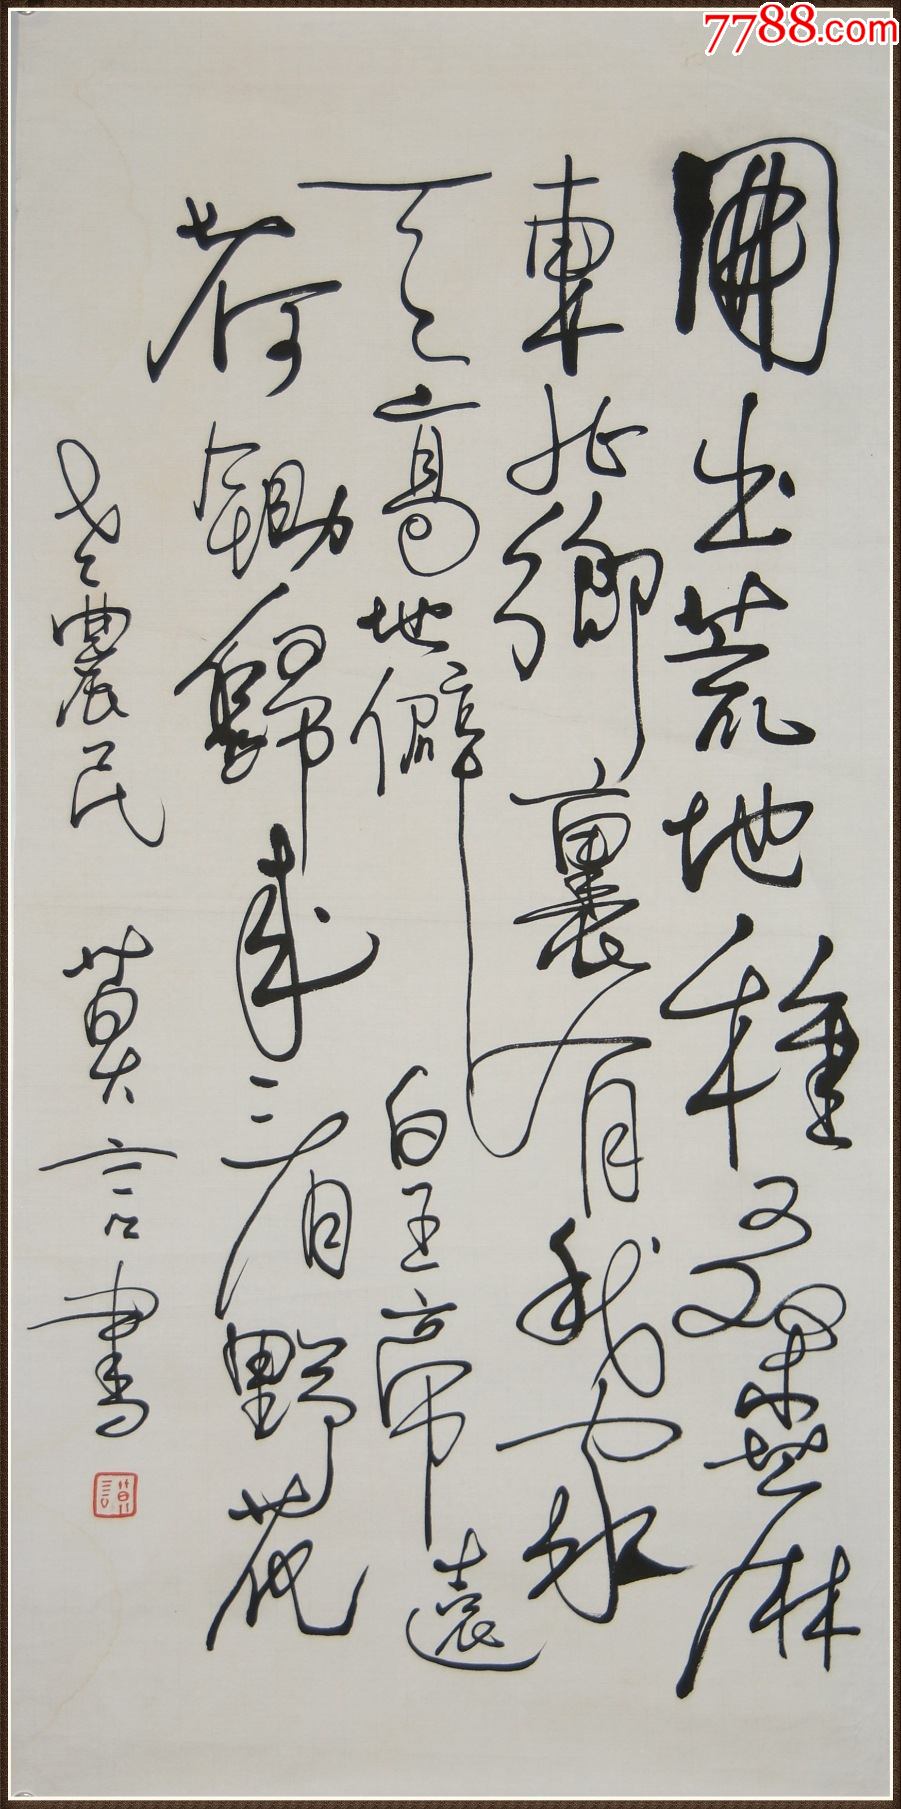 7788.com
開出荒地種桑麻
東北鄉裏有我家
天高地僻皇帝遠
荷鋤歸來看野花
老農民 莫言書
莫言